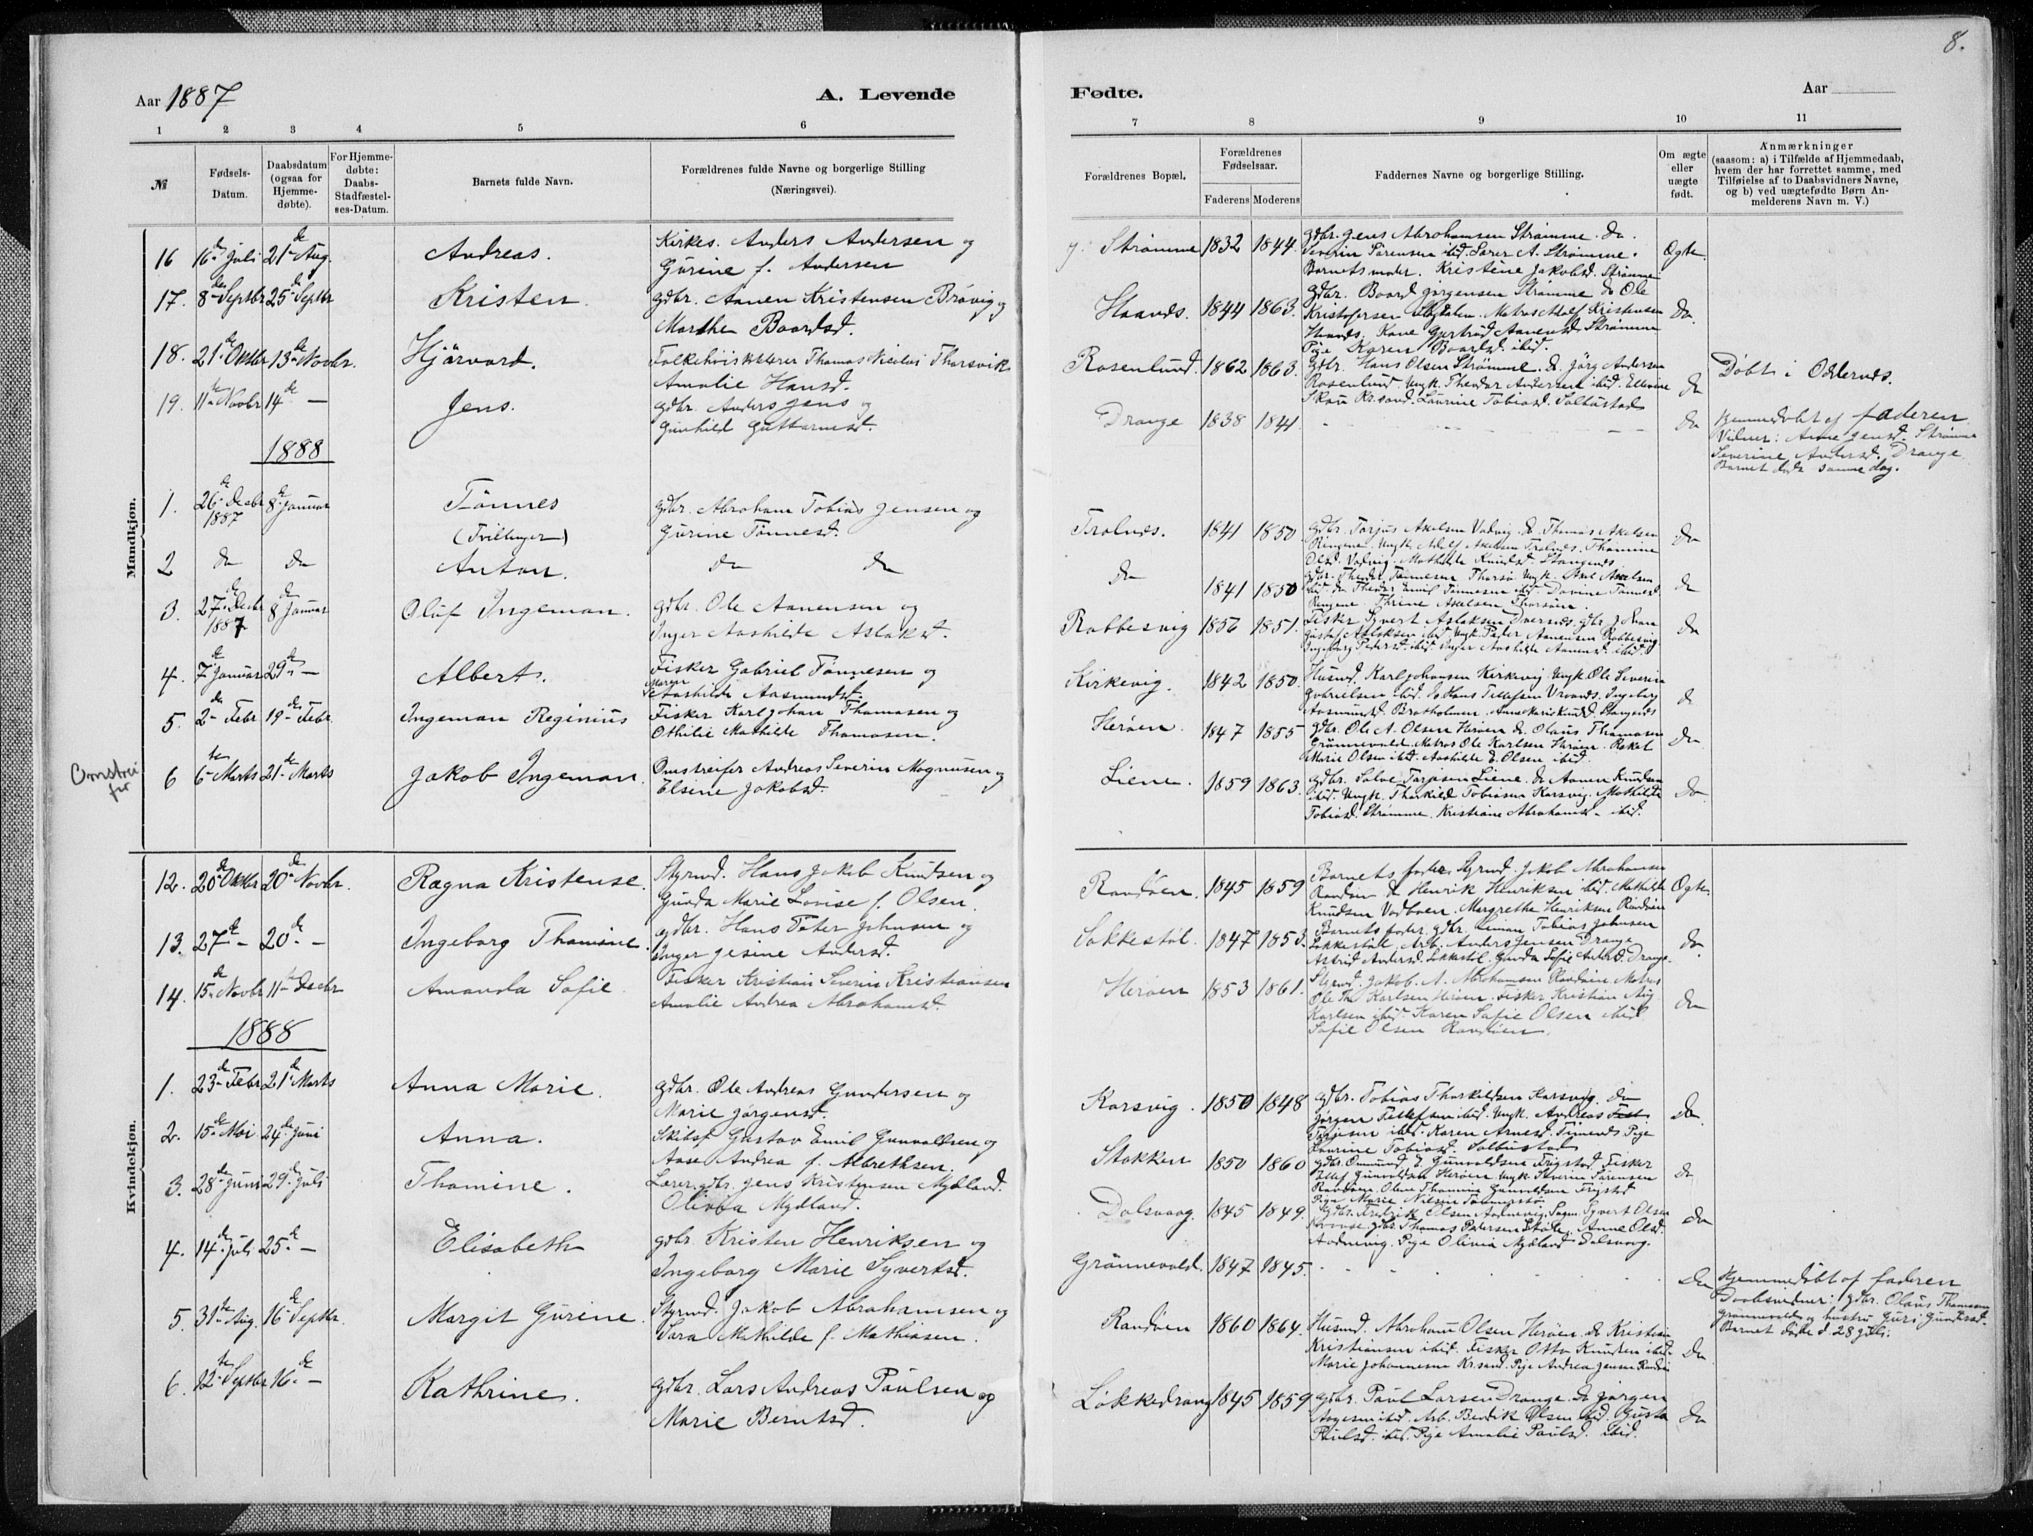 8.
Aar 1887
A. Levende
Fødte.
Aar
1 2 3 4 5 6
7 8 9 10 11
№
Fødsels-Datum.
Daabsdatum (ogsaa for Hjemme-døbte).
For Hjemme-døbte: Daabs-Stadfæstel-ses-Datum.
Barnets fulde Navn.
Forældrenes fulde Navne og borgerlige Stilling (Næringsvei).
Forældrenes Bopæl.
Forældrenes Fødselsaar.
Faderens Moderens
Faddernes Navne og borgerlige Stilling.
Om ægte eller uægte født.
Anmærkninger
(saasom: a) i Tilfælde af Hjemmedaab,
hvem der har forrettet samme, med
Tilføielse af to Daabsvidners Navne,
og b) ved uægtefødte Børn An-
melderens Navn m. V.)
Mandkjøn.
16 16de Juli 21de Aug. Andreas. Kirkes. Anders Andersen og
Gurine f. Andersen
Strømme 1832 1844 gdbr. Jens Abrahamsen Strømme. do.
Severin Sørensen ibid. Lærer A. Strømme.
Barnets moder. Kristine Jakobsd. Strømme
Ægte.
17. 8de Septbr 25de Septbr Kristen. gdbr. Aanen Kristensen Brøvig og
Marthe Baardsd.
Haanes. 1844 1863. gdbr. Baard Jørgensen Strømme do Ole
Kristofersen Matros Adolf Kristensen
Kone Gertrud Aanensd. Strømme
Pige Karen Baardsd. ibid.
do.
18. 21de Oktbr 13de Novbr. Hjørvard. Folkehøiskolelærer Thomas Nicolai Thorsvik
Amalie Hansd.
Rosenlund. 1862 1863. gdbr. Hans Olsen Strømme. do Jørg Andersen
Rosenlund. Ungk. Theodor Andersen ibid. Ellevine
Skau Kr.sand. Laurine Tobiasd. Salbustad
do
Døbt i Oddernes.
19. 11te Novbr 14de — Jens. gdbr. Anders Jens og
Gunhild Guttormsd.
Drange 1838 1841 do
Hjemmedøbt af faderen
Vidner: Anne Jensd. Strømme
Severine Andersd. Drange
Barnet døde samme dag.
1888
1. 26de Decbr 1887 8de Januar Tønnes gdbr. Abraham Tobias Jensen og
(Tvillinger) Gurine Tønnesd.
Trolnes. 1841 1850 gdbr. Torjus Axelsen Vadvig. do Thomas Axelsen
Ringene. Ungk. Adolf Axelsen Trolnes. Thomine
Olsd. Vadvig. Mathilde Knudsd. Stangenes
do
2 do do Anton. do do
do 1841 1850 gdbr. Theodor Tønnesen Thorsø Ungk. Axel Axelsen
ibid. do Theodor Emil Tønnesen ibid. Davine Tønnesd.
Ringene. Thrine Axelsen Thorsøen.
do
3. 27de Decbr 1887 8de Januar Oluf Ingeman. gdbr. Ole Aanensen og
Inger Aashilde Aslaksd.
Rabbesvig 1856 1851. Fisker Syvert Aslaksen
Gustaf Aslaksen ibid. Ungk. Peder Aanensen Rabbesvig
Ingeborg Pedersd. ibid. Inger Aashilde Aanensd. ibid.
do
4. 7de Januar 29de — Albert. Fisker Gabriel Tønnesen og
Maren
Aashilde Aasmundsd.
Kirkevig. 1842 1850. Husmd. Karl Johansen Kirkevig Ungk. Ole Severin
Gabrielsen ibid. do Hans Tellefsen Ingeborg
Aasmundsd. Bratholmen. Anne Marie Knudsd. Stangenes
do
5. 2de Febr 19de Febr. Ingeman Reginius Fisker Karl Johan Thomasen og
Othilie Mathilde Thomasen.
Herøen. 1847 1855 gdbr. Ole A. Olsen Herøen do. Olaus Thomasen
Grønnevold. Matros Ole Karlsen Herøen. Rakel
Marie Olsen ibid. Aashilde E. Olsen ibid.
do
Omstreifer
6 6te Marts 21de Marts Jakob Ingeman. Omstreifer Andreas Severin Magnusen og
Elsene Jakobsd.
Liene. 1859 1863. gdbr. Salve Torjusen Liene. do Aanen Knudsen
ibid. Ungk. Thorkild Tobiasen Korsvig. Mathilde
Tobiasd. Strømme. Kristiane Abrahamsd. ibid.
do
Kvindekjøn.
12. 20de Oktbr 20de Novbr. Ragna Kristense. Styrmd. Hans Jakob Knudsen og
Gunda Marie Lovise f. Olsen.
Randøen. 1845 1859 Barnets fader, Styrmd. Jakob Abrahamsen
Randøen do Henrik Henriksen ibid. Mathilde
Knudsen Margrethe Henriksen Randøen
Ægte
13. 27de — 20de — Ingeborg Thomine. gdbr. Hans Peter Johnsen og
Inger Jesine Andersd.
Løkkestøl. 1847 1853. Barnets fader. gdbr. Simon Tobias Johnsen
Løkkestøl. Arb. Anders Jensen Drange
Astrid Andersd. Løkkestøl. Gunda Sofie Drange.
do.
14. 15de Novbr 11te Decbr Amanda Sofie. Fisker Kristian Severin Kristiansen
Amalie Andrea Abrahamsd.
Herøen 1853 1861. Styrmd. Jakob A. Abrahamsen Randøen. Matros
Ole Th. Karlsen Herøen. Fisker Kristian Aug.
Karlsen ibid. Karen Sofie Olsen ibid.
Sofie Olsen Randøen.
do
1888
1. 23de Febr 21de Marts Anna Marie. gdbr. Ole Andreas Gundersen og
Marie Jørgensd.
Korsvig. 1850 1848 gdbr. Tobias Thorkildsen Korsvig. do
Jørgen Tellefsen ibid. Ungk. Andreas
Torjusen ibid. Karen Arnesd. Timenes Pige
Laurine Tobiasd. Salbustad
do.
2. 15de Mai 24de Juni Anna. Skibsf. Gustav Emil Gunvaldsen og
Aase Andrea f. Albrethsen.
Stokken 1850 1860 gdbr. Omund E. Gunvaldsen Frigstad. Fisker
Tellef Gunvaldsen Herøen Ungk. Severin Sørensen
Randøen. Olene Thomine Gunvaldsen Frigstad
Pige Marie Nilsen
do
3. 28de Juni 29de Juli Thomine. Lærer, gdbr. Jens Kristensen Mydland.
Olivia Mydland.
Dalsvaag. 1845 1849. gdbr. Fredrik Olsen Aadnevig. Sogn. Syvert Olsen
Kovose. gdbr. Thomas Pedersen Støle. Anne Olsd.
Aadnevig. Pige Olivia Mydland Dalsvaag.
do
4. 14de Juli 25de — Elisabeth gdbr. Kristen Henriksen og
Ingeborg Marie Syvertsd.
Grønnevold. 1847 1845. do
Hjemmedøbt af faderen
Daabsvidner: gdbr. Olaus Thomasen
Grønnevold og hustru Guri Gundersd.
Barnet døde d. 28 Juli.
5. 31te Aug. 16de Septbr. Margit Gurine. Styrmd. Jakob Abrahamsen og
Sara Mathilde f. Mathiasen.
Randøen 1860 1864. Husmd. Abraham Olsen Herøen. do Kristian
Kristiansen ibid. Fisker Otto Knudsen ibid.
Marie Johannesen Kr.sand. Pige Andrea Jensen Randøen
do
6. 12te Septbr 16de — Kathrine. gdbr. Lars Andreas Paulsen og
Marie Berntsd.
Løkkedrang 1845 1859 gdbr. Paul Larsen Drange. do Jørgen
Aagesen ibid. Arb. Bendik Olsen ibid. Gusta
Paulsd. ibid. Pige Amalie Paulsd. ibid.
do